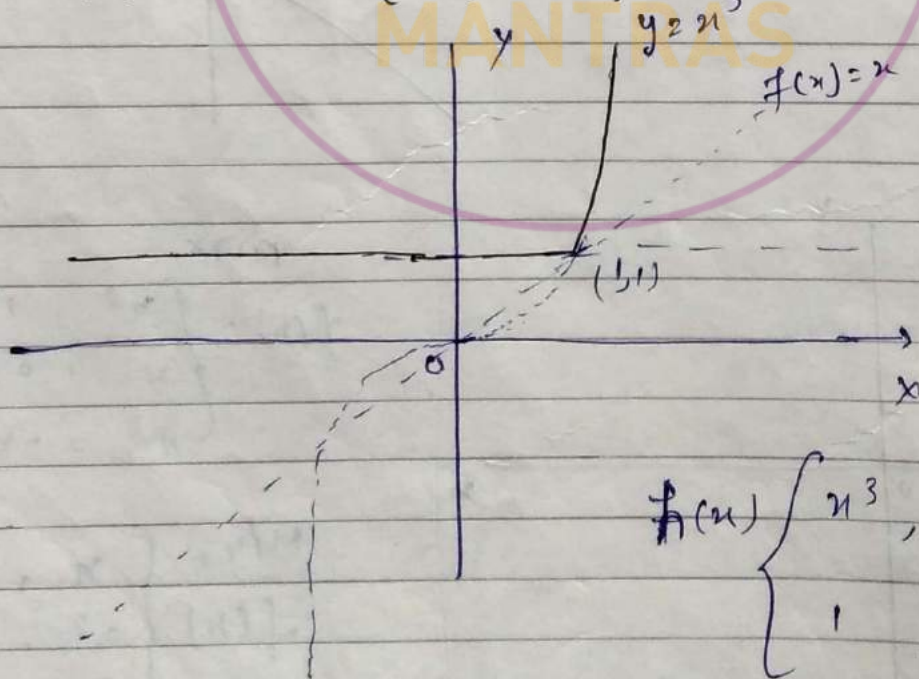 MANTRAS
y
y = x³
f(x) = x
(1,1)
O
X
h(x) { x³ ,
1